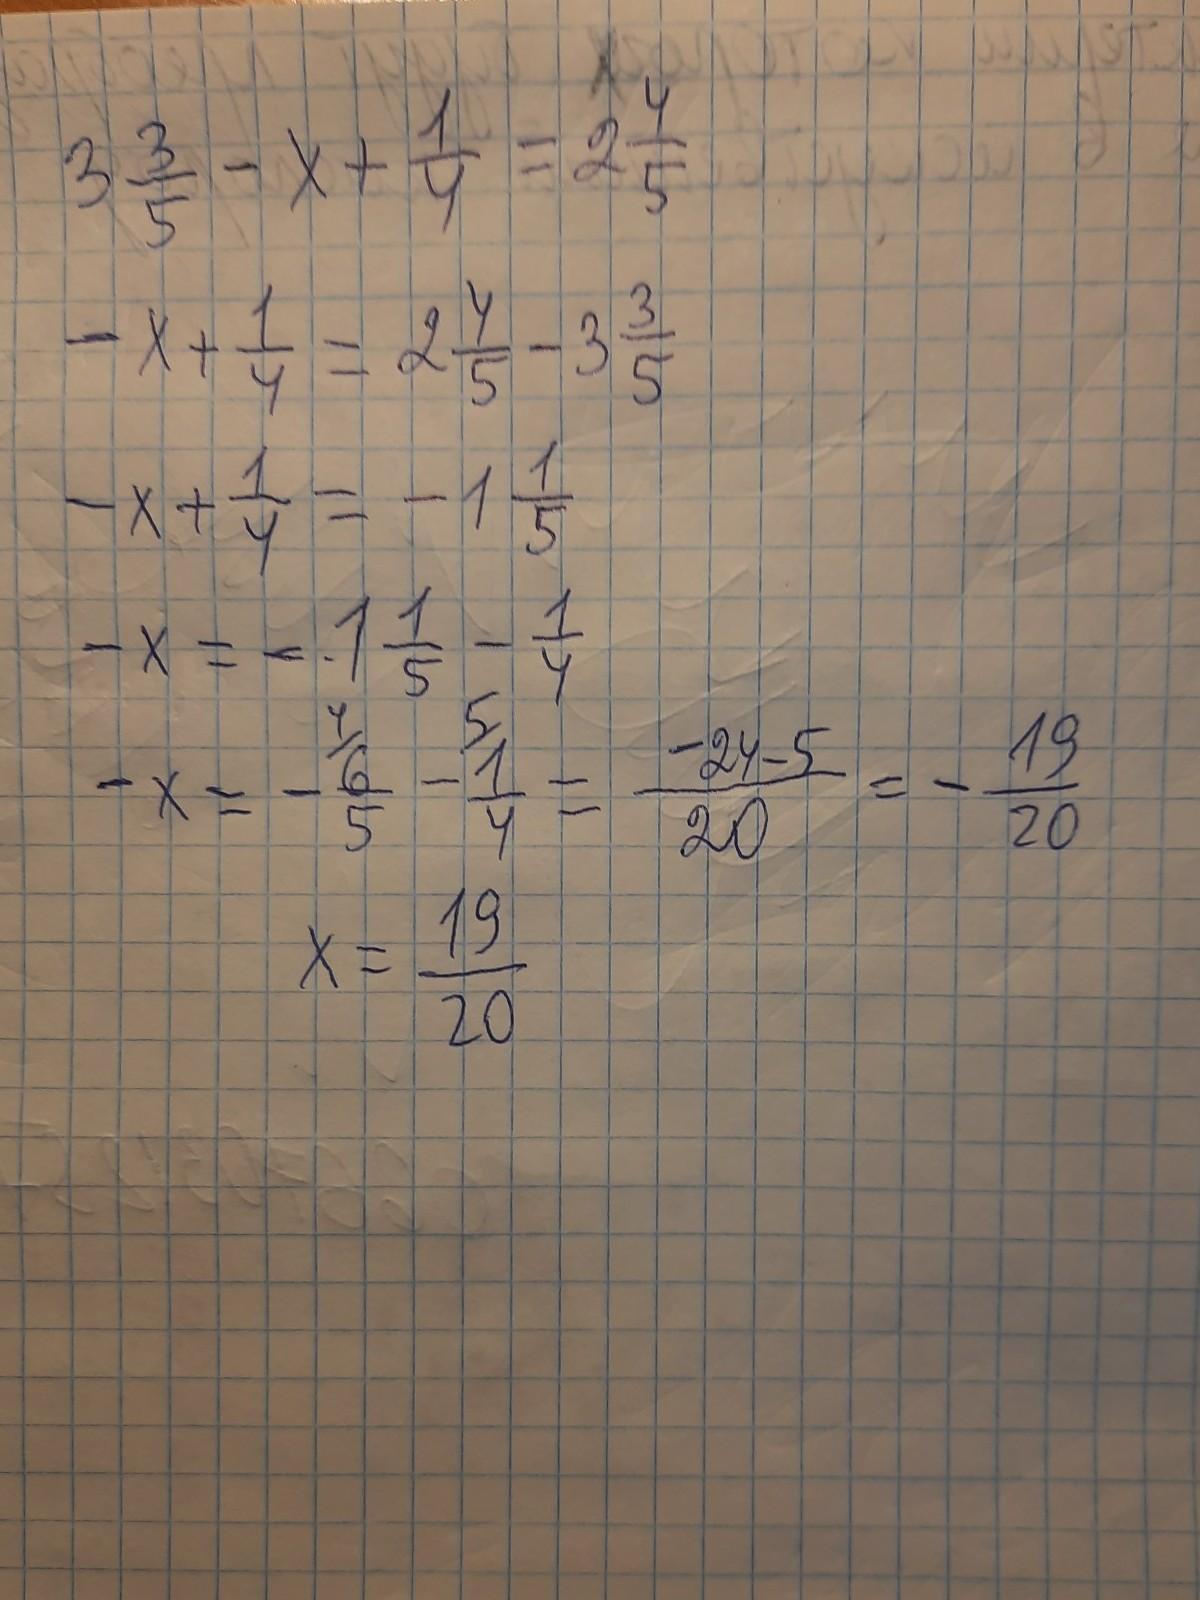 3 3/5 - x + 1/4 = 2 4/5
- x + 1/4 = 2 4/5 - 3 3/5
- x + 1/4 = - 1 1/5
- x = - 1 1/5 - 1/4
- x = - 4/ 6/5 - 5/ 1/4 = -24-5/20 = - 19/20
x = 19/20